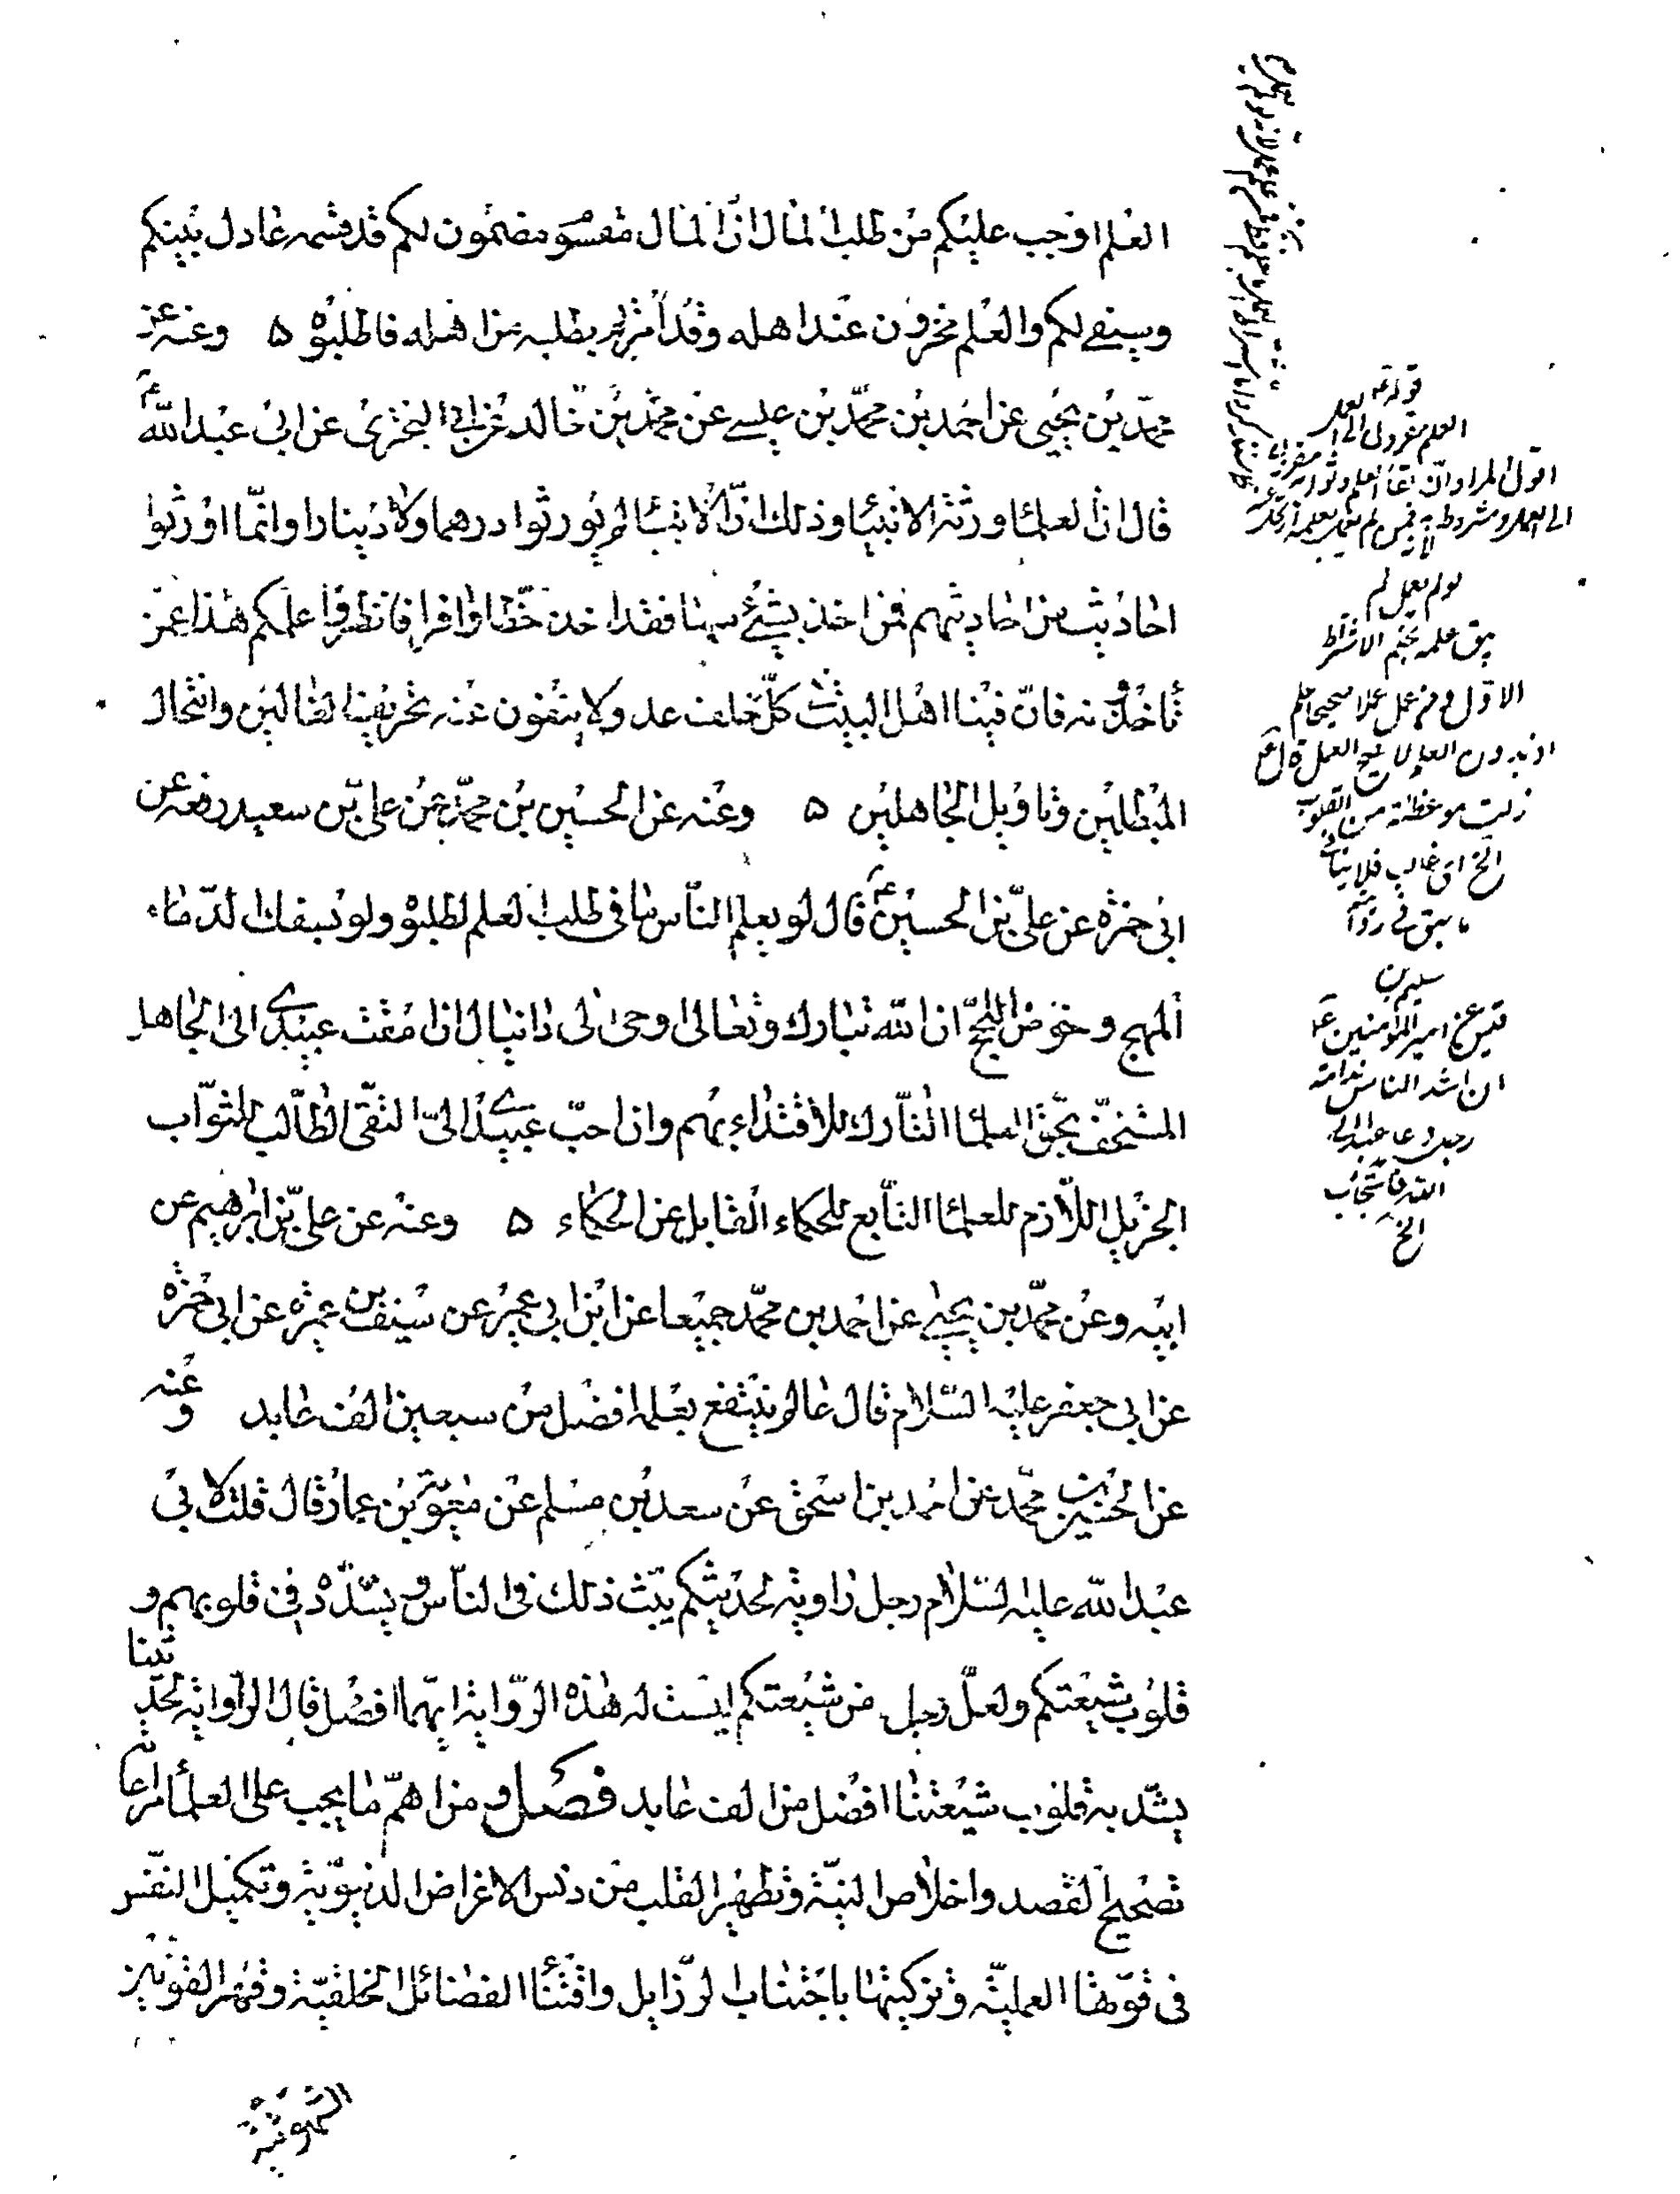 العلم اوجب عليكم من طلب المال ان المال مقسوم مضمون لكم قد قسمه عادل بينكم
وسيفى لكم والعلم مخزون عند اهله وقد امرتم بطلبه من اهله فاطلبوه ۵ وعنه عن
محمد بن يحيى عن احمد بن محمد بن عيسى عن محمد بن خالد عن ابى البخترى عن ابى عبد الله ع
قال ان العلما ورثة الانبيا وذلك ان الانبيا لم يورثوا درهما ولا دينارا وانما اورثوا
احاديث من احاديثهم فمن اخذ بشئ منها فقد اخذ حظا وافرا فانظروا علمكم هذا عمن
تأخذونه فان فينا اهل البيت فى كل خلف عدولا ينفون عنه تحريف الغالين وانتحال
المبطلين وتاويل الجاهلين ۵ وعنه عن الحسين بن محمد عن على بن سعيد رفعه عن
ابى حمزه عن على بن الحسين ع قال لو يعلم الناس ما فى طلب العلم لطلبوه ولو بسفك الدماء
المهج وخوض اللجج ان الله تبارك وتعالى اوحى الى دانيال ان امقت عبيدى الى الجاهل
المستخف بحق العلما التارك للاقتداء بهم وان احب عبيدى الى التقى الطالب للثواب
الجزيل اللازم للعلما التابع للحكماء القابل عن الحكماء ۵ وعنه عن على بن ابرهيم عن
ابيه وعن محمد بن يحيى عن احمد بن محمد جميعا عن ابن ابى عمير عن سيف بن عميره عن ابى حمزه
عن ابى جعفر عليه السلام قال عالم ينتفع بعلمه افضل من سبعين الف عابد وعنه
عن الحسين بن محمد عن احمد بن اسحق عن سعد بن مسلم عن معوية بن عمار قال قلت لابى
عبد الله عليه السلام رجل راوية لحديثكم يبث ذلك فى الناس ويشدده فى قلوبهم و
قلوب شيعتكم ولعل رجل من شيعتكم ليست له هذه الرواية ايهما افضل قال الراوية لحديثنا
يشد به قلوب شيعتنا افضل من الف عابد فصل ومن اهم ما يجب على العلما مراعاته
تصحيح القصد واخلاص النية وتطهير القلب من دنس الاغراض الدنيوية وتكميل النفس
فى قوتها العملية وتزكيتها باجتناب الرزايل واقتنا الفضائل الخلقية وقهر القوتين
الشهوية
العلم مقرون الى
لم يعمل لم
يبق علمه بحكم الاشتراط
الاول
زلت موعظته من القلوب
الخ
ما سبق فى رواية
سليم بن
قيس عن امير المؤمنين ع
ان اشد الناس ندامة
رجل دعا عبدا الى
الله فاستجاب
الخ